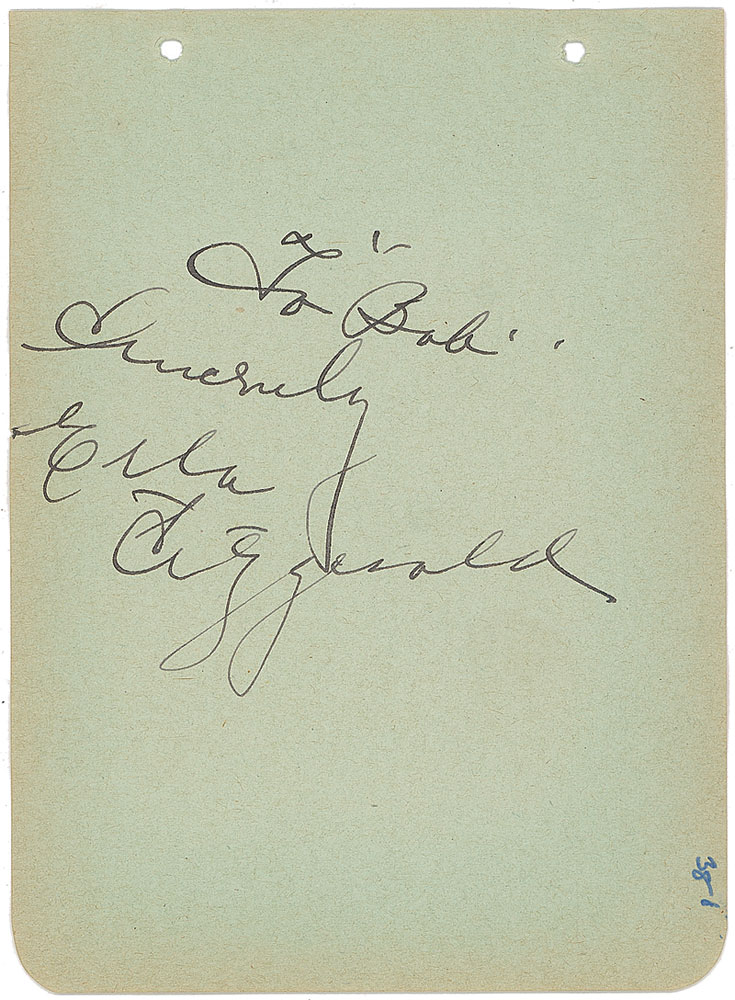 To "Bob"..
Sincerely
Ella
Fitzgerald
38-1